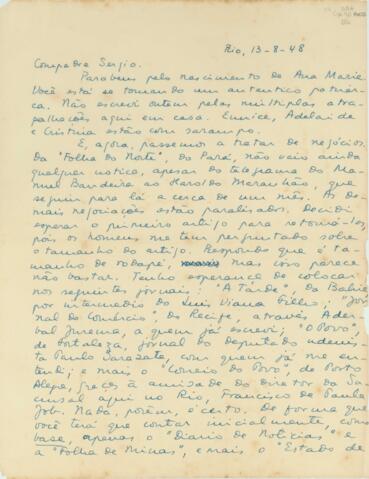 Rio, 13-8-48
Compadre Sergio.
Parabens pelo nascimento de Ana Maria.
Você está se tornando um autentico patriar-
ca. Não escrevi ontem pelas multiplas atra-
palhações aqui em casa. Eunice, Adelaide
e Cristina estão com sarampo.
E, agora, passemos a tratar de negócios.
Da "Folha do Norte", do Pará, não veio ainda
qualquer noticia, apesar do telegrama do Ma-
nuel Bandeira ao Haroldo Maranhão, que
seguiu para lá a cerca de um mês. As de-
mais negociações estão paralisadas. Decidi
esperar o primeiro artigo para retomá-las,
pois os homens me tem perguntado sobre
o tamanho do artigo. Respondo que é ta-
manho de rodapé, mas isso parece
não bastar. Tenho esperança de colocar
nos seguintes jornais: "A Tarde", da Bahia
por intermedio do Luis Viana Filho; "Jor-
nal do Comércio", do Recife, através Ader-
bal Jurema, a quem já escrevi; "O Povo",
de Fortaleza, jornal do deputado udenis-
ta Paulo Sarazate, com quem já me en-
tendi; e mais o "Correio do Povo", de Porto
Alegre, graças à amizade do director da Su-
cursal aqui no Rio, Francisco de Paula
Job. Nada, porém, é certo. De forma que
você terá que contar inicialmente, como
base, apenas o "Diario de Noticias" e
a "Folha de Minas", e mais o "Estado de